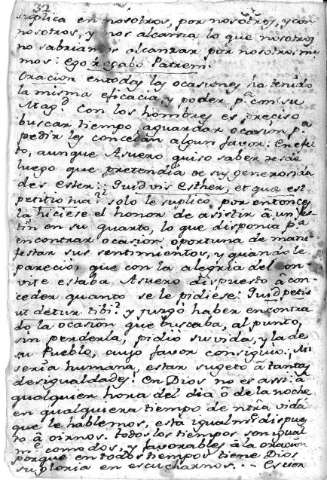 32
suplica en nosotros, por nosotros, y con
nosotros, y nos alcanza lo que nosotros
no sabriamos alcanzar por nosotros mis
mos: Ego rogabo Patrem.
Oracion en todas las ocasiones ha tenido
la misma eficacia, y poder p. con su
Magd. Con los hombres es preciso
buscar tiempo, aguardar ocasion p.
pedir les concedan algun favor. En efec
to, aunque Asuero quiso saber desde
luego que pretendia de su generosida
des Ester: Quid vis Esther, et que est
petitio tua? solo le suplicó, por entonces
la hiciese el honor de asistir á un fes
tin en su quarto, lo que disponia pa.
encontrar ocasion oportuna de mani
festar sus sentimientos, y quando le
pareció, que con la alegria del con
vite estaba Asuero dispuesto á con
ceder quanto se le pidiese: Quid petis
ut detur tibi? y juzgó haber encontra
do la ocasion que buscaba, al punto,
sin perderla, pidio su vida, y la de
su Pueblo, cuyo favor consiguio. Mi
seria humana, estar sugeto á tantas
desigualdades! En Dios no es assi: á
qualquier hora del dia ó de la noche
en qualquiera tiempo de ntra vida
que le hablemos, está igualmte. dispues
to á oirnos. todos los tiempos son igual
m. comodos, y favorables á la oracion
porque en todos tiempos tiene Dios
su gloria en escucharnos...